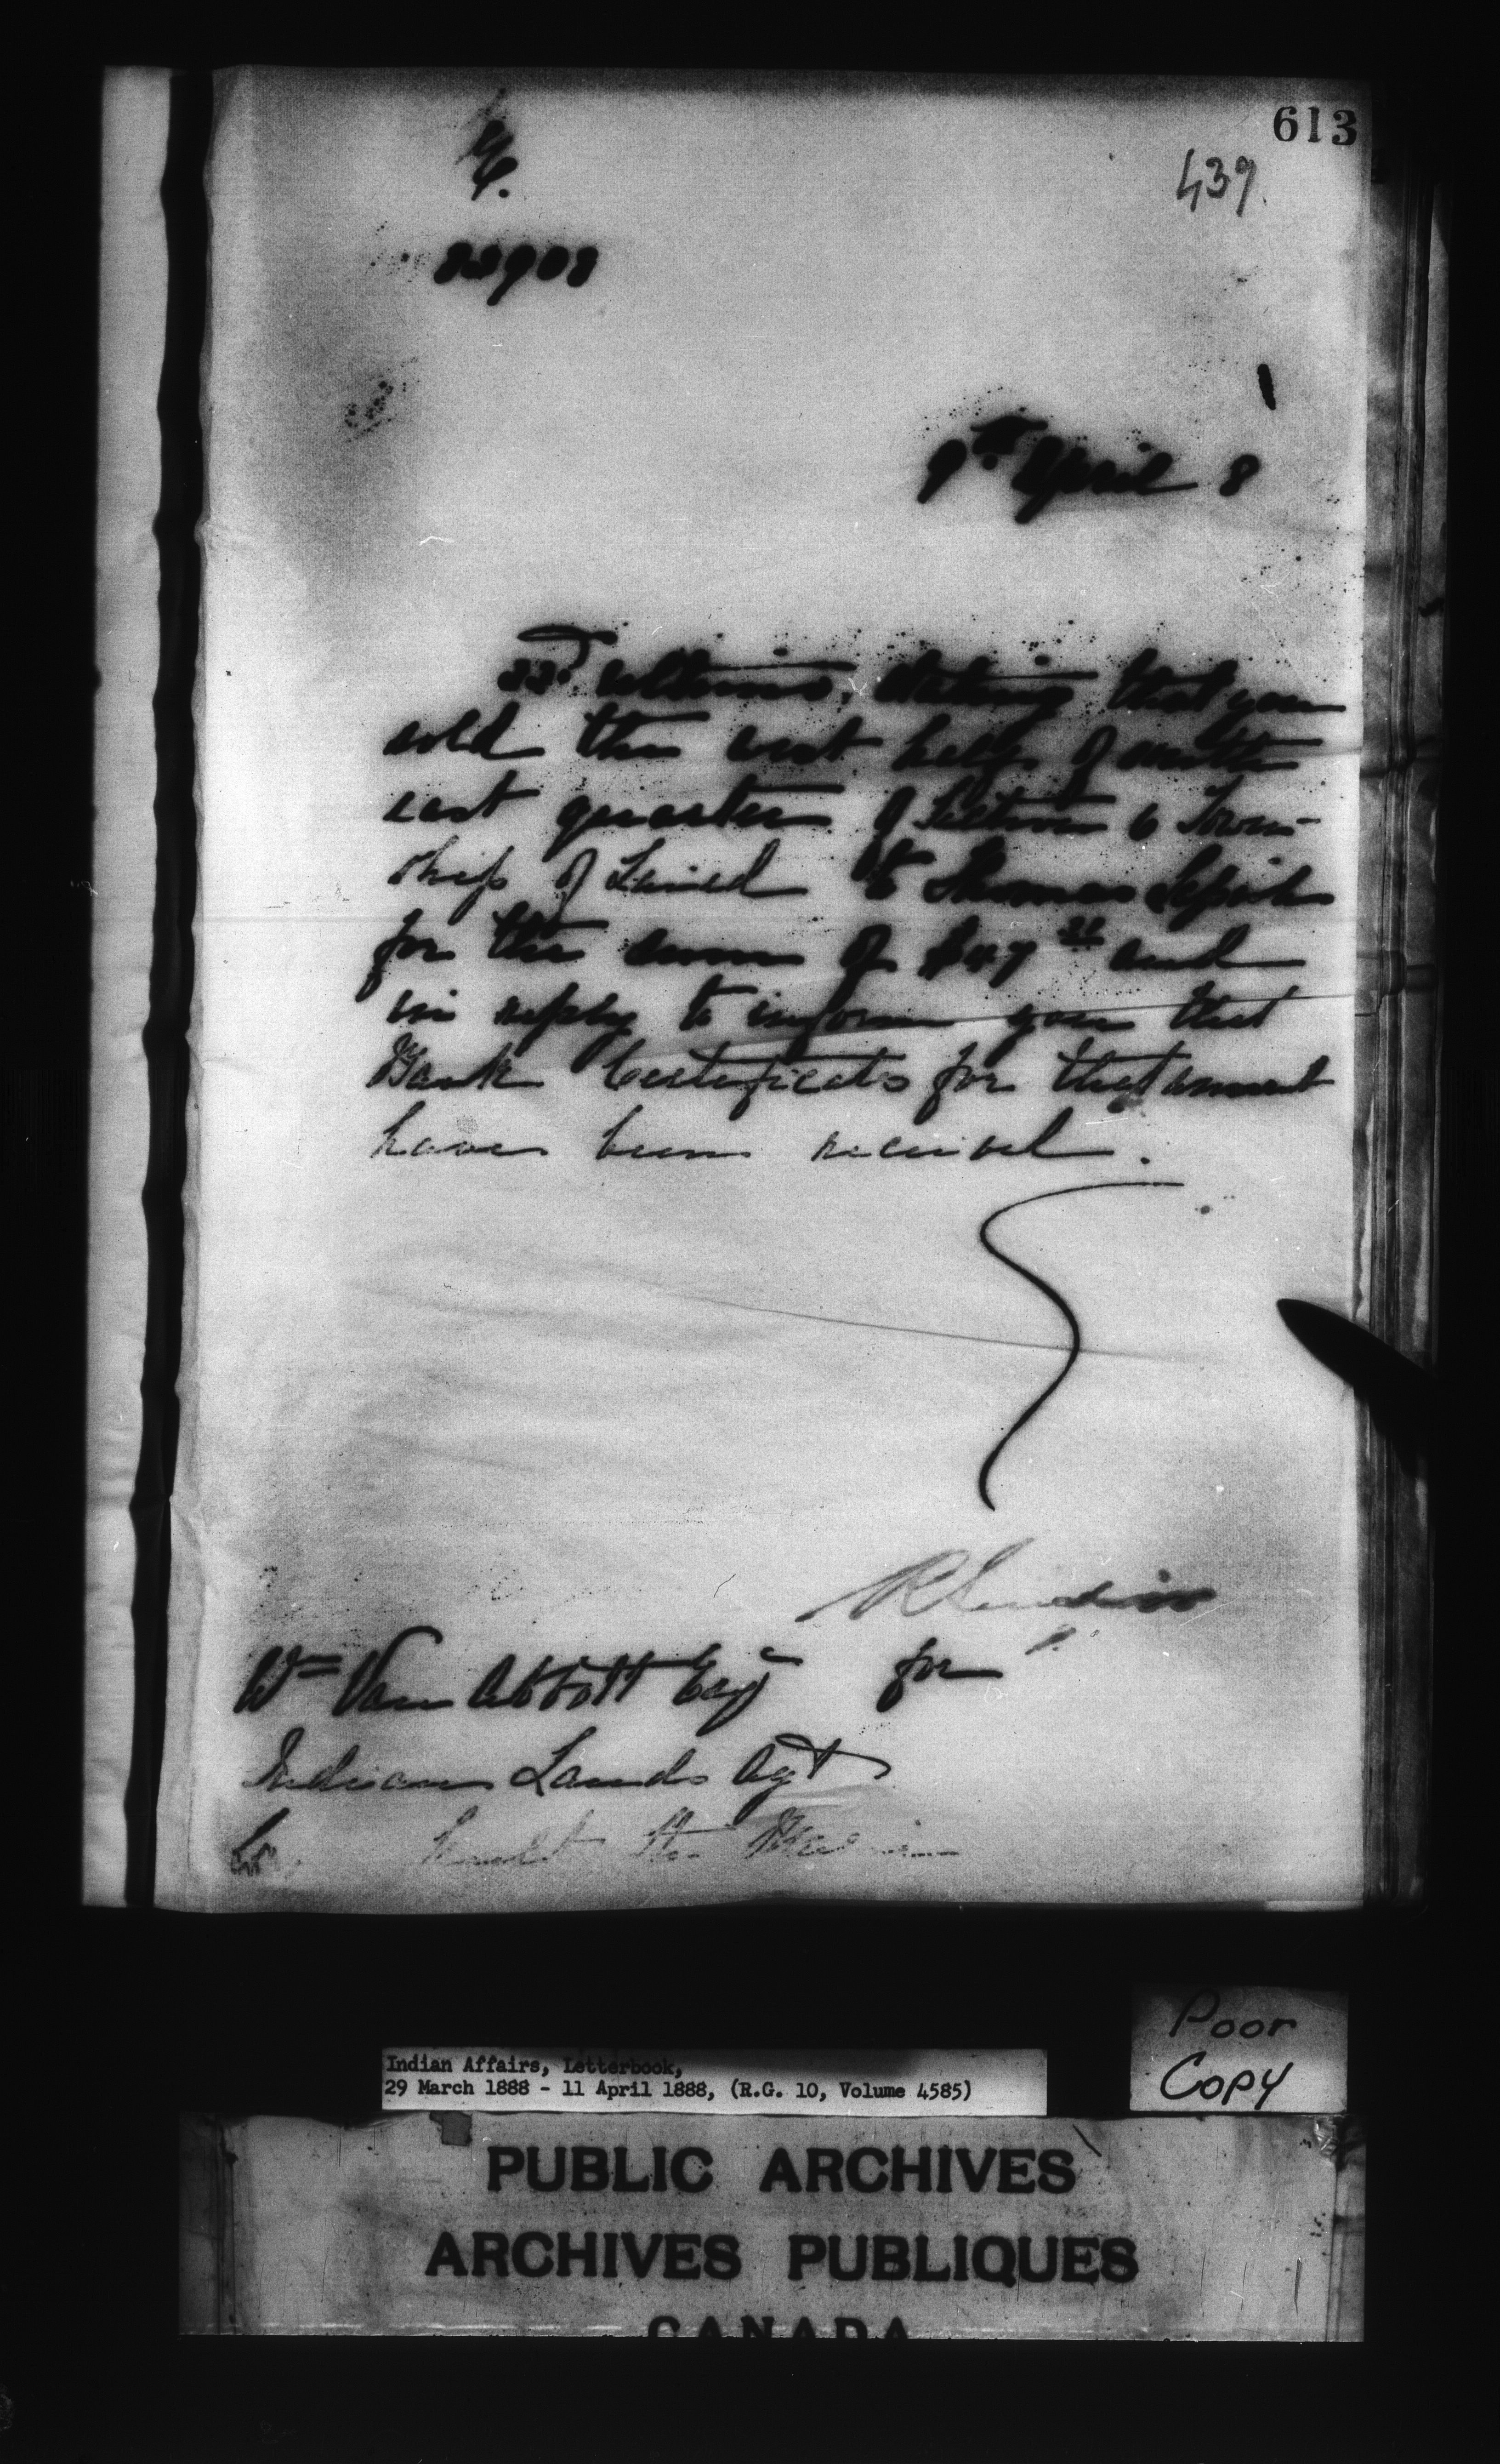 613
439.
9th April 8
22d ultimo, stating that you
sold the west half of south
east quarter of Section 6 Town-
ship of Laird to Thomas
for the sum of $47 and
in reply to inform you that
Bank Certificates for that amount
have been received.
Wm Van Abbott Esq for
Indian Lands Agt
Sault Ste Marie
Poor
Copy
Indian Affairs, Letterbook,
29 March 1888 - 11 April 1888, (R.G. 10, Volume 4585)
PUBLIC ARCHIVES
ARCHIVES PUBLIQUES
CANADA